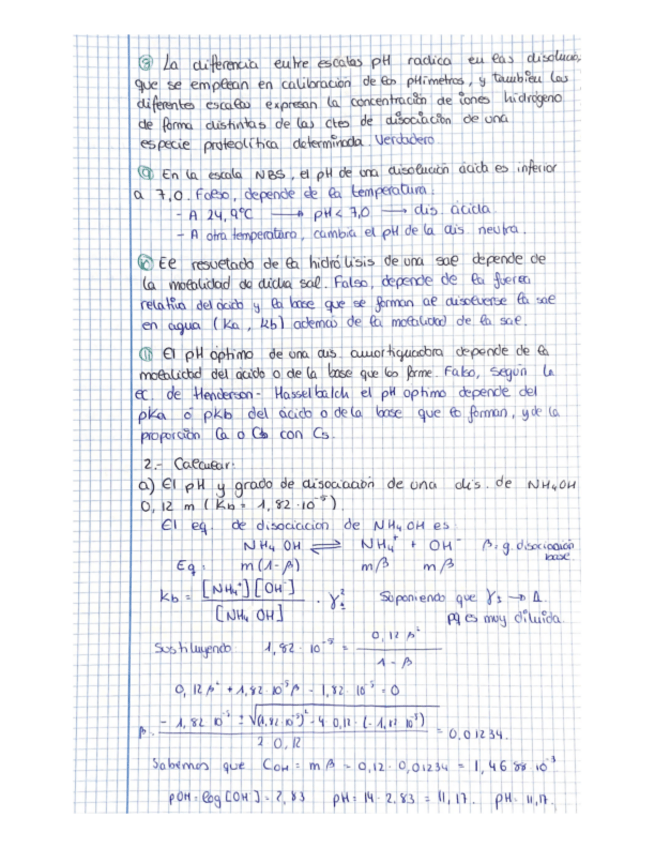 ⑧ La diferencia entre escalas pH radica en las disolucio
que se emplean en calibración de los pHimetros, y también las
diferentes escalas expresan la concentración de iones hidrógeno
de forma distintas de las ctes de disociación de una
especie proteolítica determinada. Verdadero.
⑨ En la escala NBS, el pH de una disolución ácida es inferior
a 7,0. Falso, depende de la temperatura.
- A 24,9ºC → pH < 7,0 → dis. ácida
- A otra temperatura, cambia el pH de la dis neutra.
⑩ El resultado de la hidrólisis de una sal depende de
la molalidad de dicha sal. Falso, depende de la fuerza
relativa del ácido y la base que se forman al disolverse la sal
en agua (Ka, Kb) además de la molalidad de la sal.
⑪ El pH óptimo de una dis amortiguadora depende de la
molalidad del ácido o de la base que los forme. Falso, según la
ec de Henderson-Hasselbalch el pH optimo depende del
pKa o pKb del ácido o de la base que lo forman, y de la
proporción Ca o Cb con Cs.
2.- Calcular:
a) El pH y grado de disociación de una dis. de NH4OH
0,12 m (Kb = 1,82·10⁻⁵)
El eq. de disociación de NH4OH es:
NH4OH ⇌ NH4⁺ + OH⁻ β: g. disociación base
Eq: m(1-β) mβ mβ
Kb = [NH4⁺][OH⁻] / [NH4OH] · γ±² Suponiendo que γ± → 1.
pq es muy diluida.
Sustituyendo 1,82·10⁻⁵ = 0,12 β² / 1-β
0,12 β² + 1,82·10⁻⁵ β - 1,82·10⁻⁵ = 0
β = -1,82·10⁻⁵ ± √(1,82·10⁻⁵)² - 4·0,12·(-1,82·10⁻⁵) / 2·0,12 = 0,01234.
Sabemos que COH = mβ = 0,12·0,01234 = 1,4688·10⁻³
pOH = log [OH⁻] = 2,83 pH = 14 - 2,83 = 11,17. pH = 11,17.